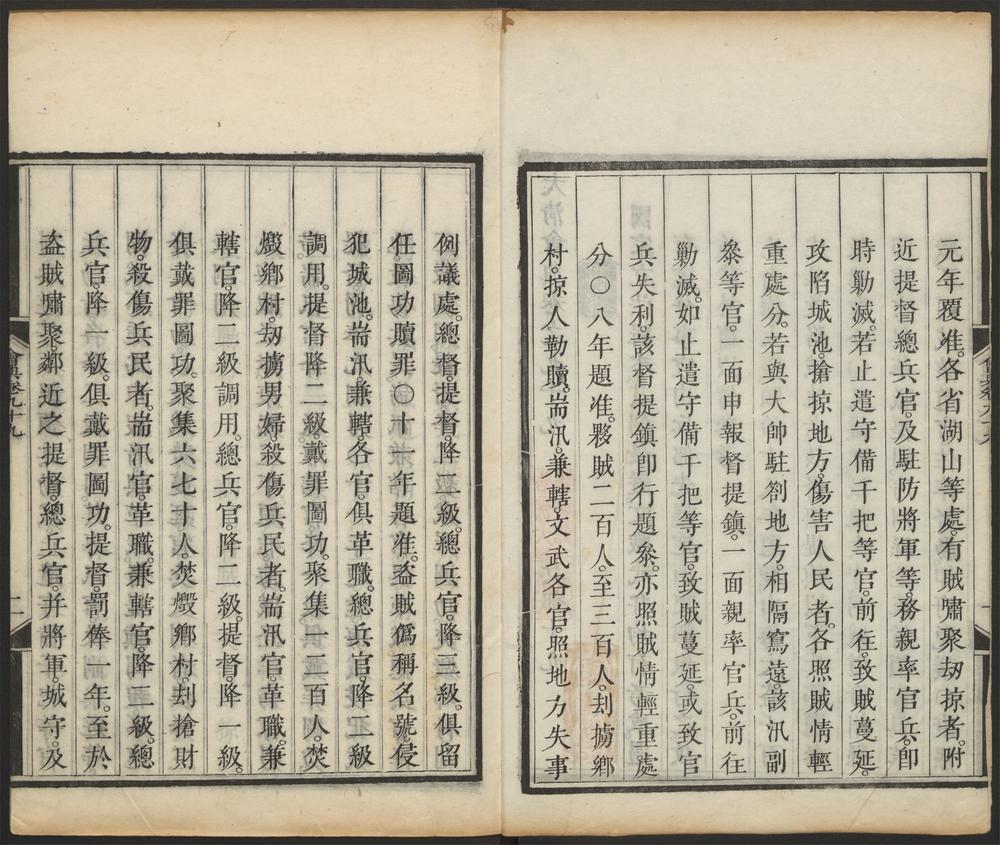 元年覆准。各省湖山等處。有賊嘯聚劫掠者。附
近提督總兵官。及駐防將軍等。務親率官兵。卽
時勦滅。若止遣守備千把等官。前往。致賊蔓延。
攻陷城池。搶掠地方。傷害人民者。各照賊情輕
重處分。若與大帥駐劄地方。相隔寫遠。該汛副
叅等官。一面申報督提鎭。一面親率官兵。前往
勦滅。如止遣守備千把等官。致賊蔓延。或致官
兵失利。該督提鎭卽行題叅。亦照賊情輕重處
分〇八年題准。夥賊二百人。至三百人。刦擄鄉
村。掠人勒贖。耑汛。兼轄。文武各官。照地方失事
例議處。總督提督。降二級。總兵官。降三級。俱留
任。圖功贖罪〇十一年題准。盜賊僞稱名號。侵
犯城池。耑汛。兼轄。各官。俱革職。總兵官。降二級
調用。提督降二級。戴罪圖功。聚集一二百人。焚
燬鄉村。刧擄男婦。殺傷兵民者。耑汛官。革職。兼
轄官。降二級調用。總兵官。降二級。提督。降一級。
俱戴罪圖功。聚集六七十人。焚燬鄉村。刦搶財
物。殺傷兵民者。耑汛官。革職。兼轄官。降二級。總
兵官。降一級。俱戴罪圖功。提督。罰俸一年。至於
盜賊嘯聚。鄰近之提督。總兵官。并將軍。城守。及
會典卷九十九
二